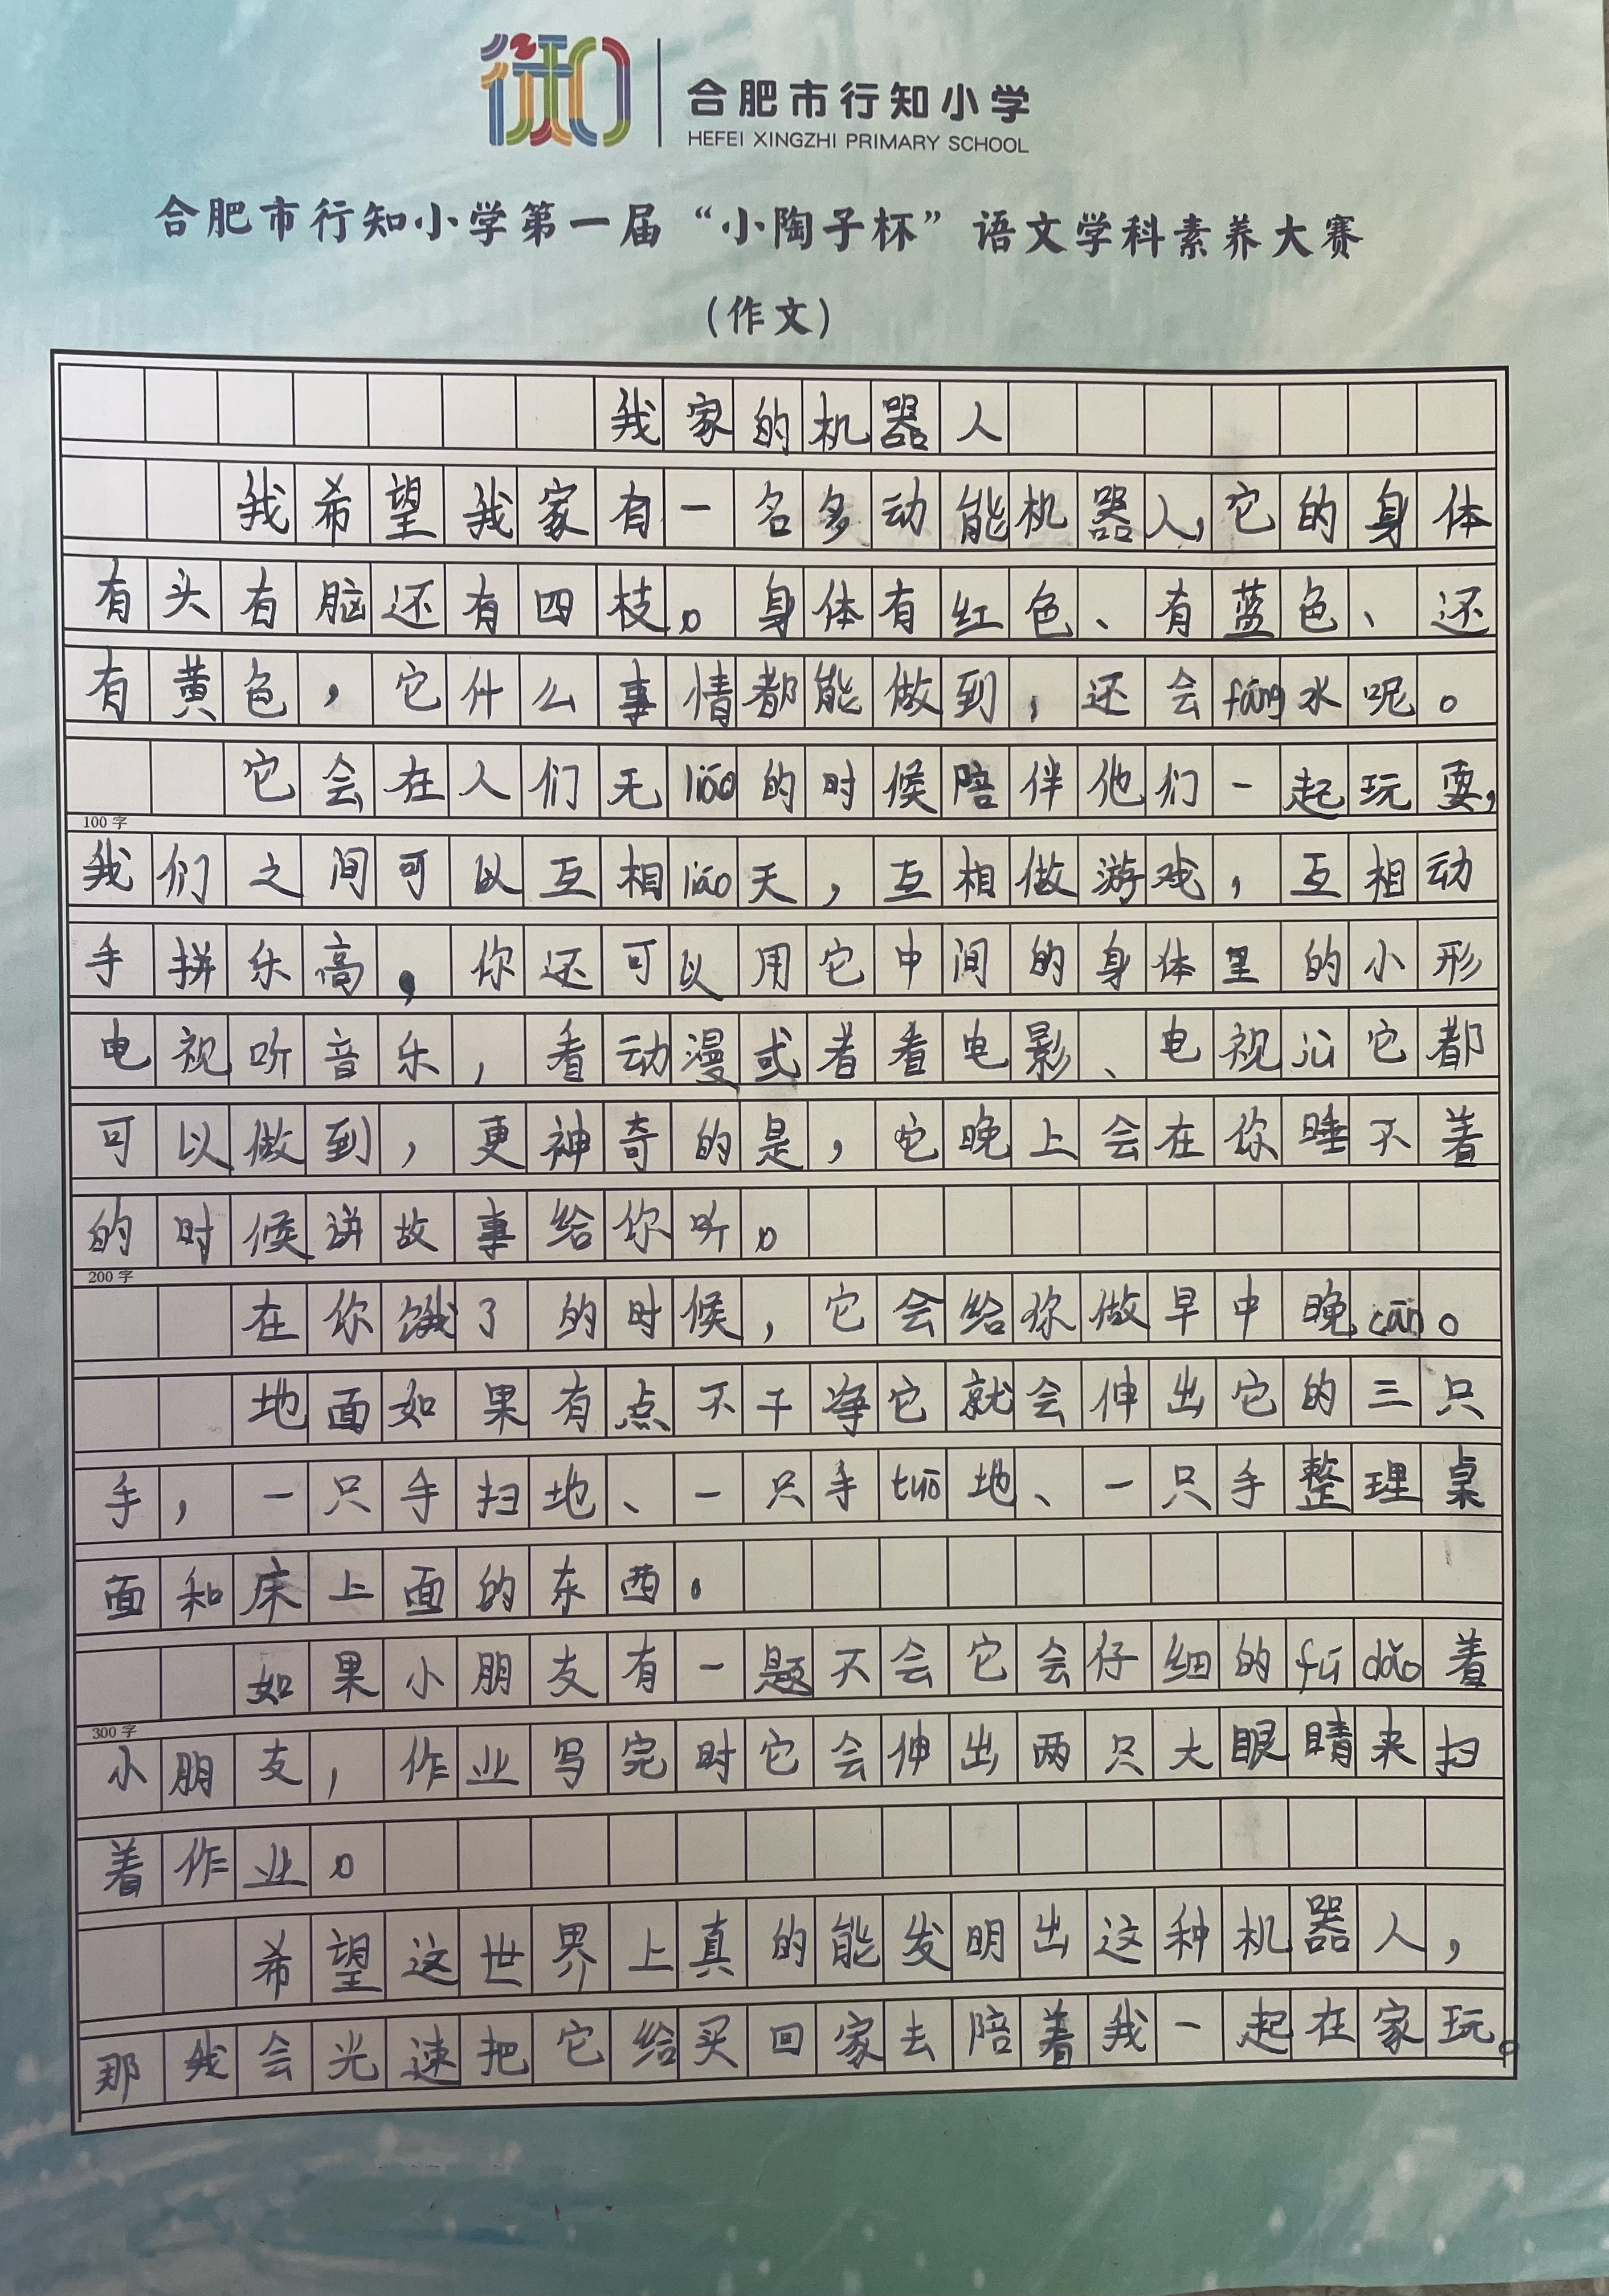 合肥市行知小学
HEFEI XINGZHI PRIMARY SCHOOL
合肥市行知小学第一届“小陶子杯”语文学科素养大赛
(作文)
我家的机器人
我希望我家有一名多动能机器人,它的身体
有头有脑还有四枝。身体有红色、有蓝色、还
有黄色，它什么事情都能做到，还会fáng水呢。
它会在人们无liáo的时候陪伴他们一起玩耍,
100字
我们之间可以互相liáo天，互相做游戏，互相动
手拼乐高，你还可以用它中间的身体里的小形
电视听音乐，看动漫或者看电影、电视jù它都
可以做到，更神奇的是，它晚上会在你睡不着
的时候讲故事给你听。
200字
在你饿了的时候，它会给你做早中晚cān。
地面如果有点不干净它就会伸出它的三只
手，一只手扫地、一只手tuō地、一只手整理桌
面和床上面的东西。
如果小朋友有一题不会它会仔细的fǔ dǎo着
300字
小朋友，作业写完时它会伸出两只大眼睛来扫
着作业。
希望这世界上真的能发明出这种机器人，
那我会光速把它给买回家去陪着我一起在家玩。